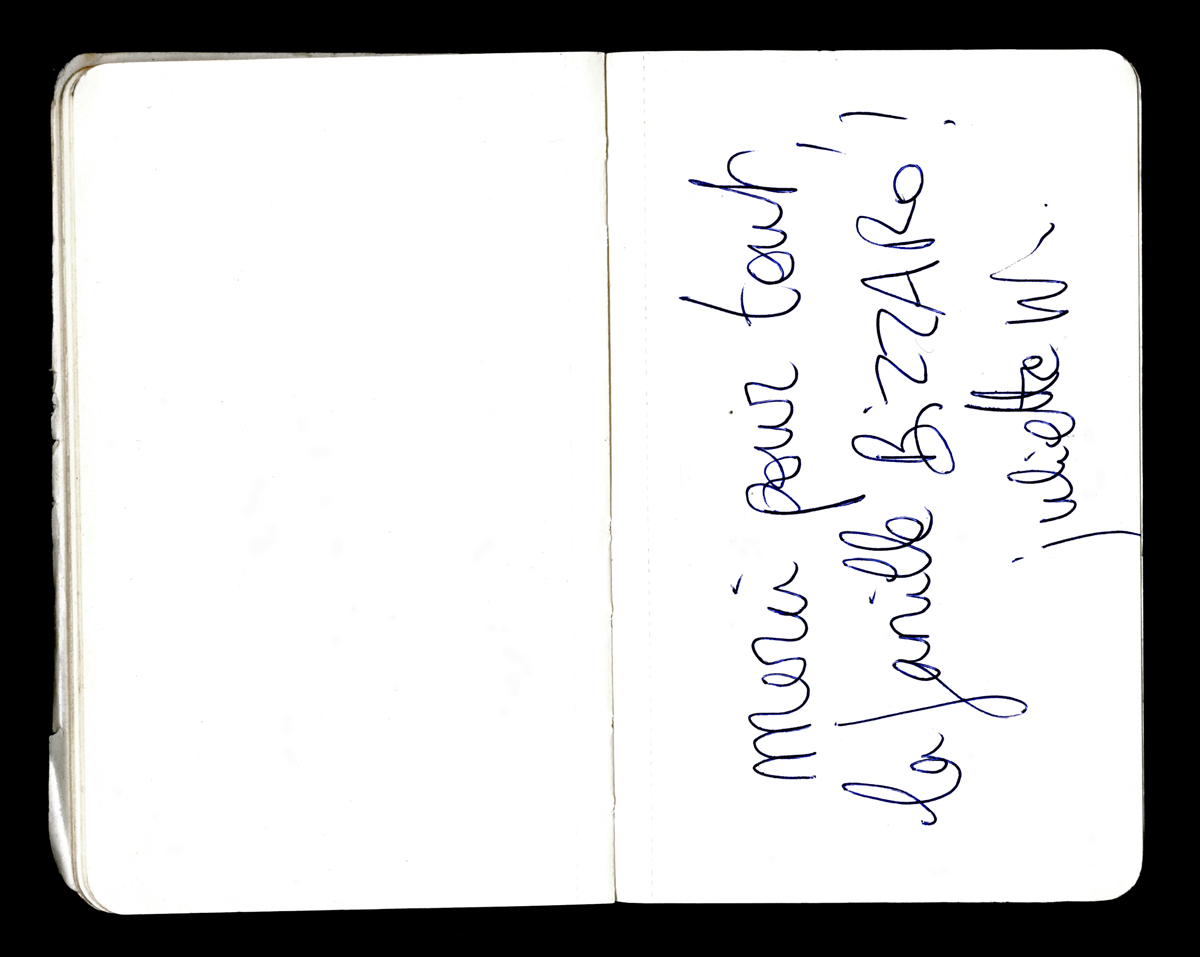 merci pour tout,
la famille BizzARo !
juliette W.